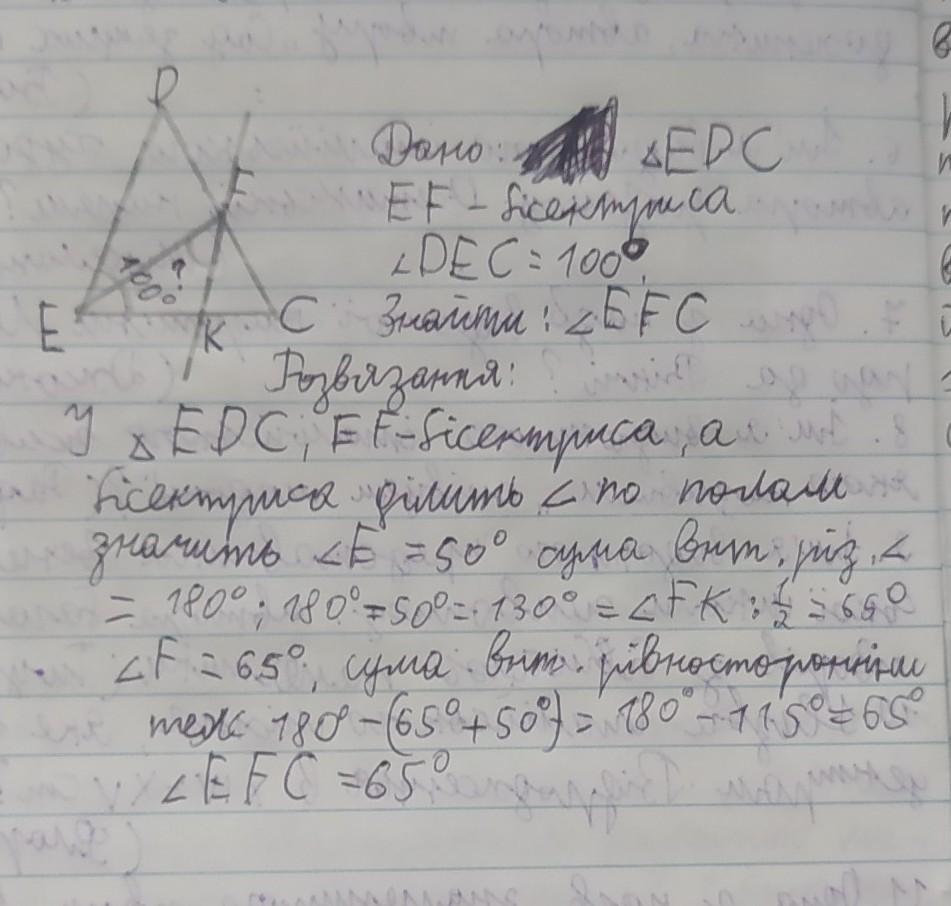 D
F
100°
?
E
K
C
Дано: △EDC
EF - бісектриса
∠DEC = 100°,
Знайти: ∠EFC
Розвязання:
У △EDC, EF-бісектриса, а
бісектриса ділить ∠ по полам
значить ∠E = 50° сума внт. різ. ∠
= 180°; 180° = 50° = 130° = ∠FK : 1/2 = 65°
∠F = 65°, сума внт. рівносторонніш
теж 180° - (65° + 50°) = 180° - 115° = 65°
∠EFC = 65°